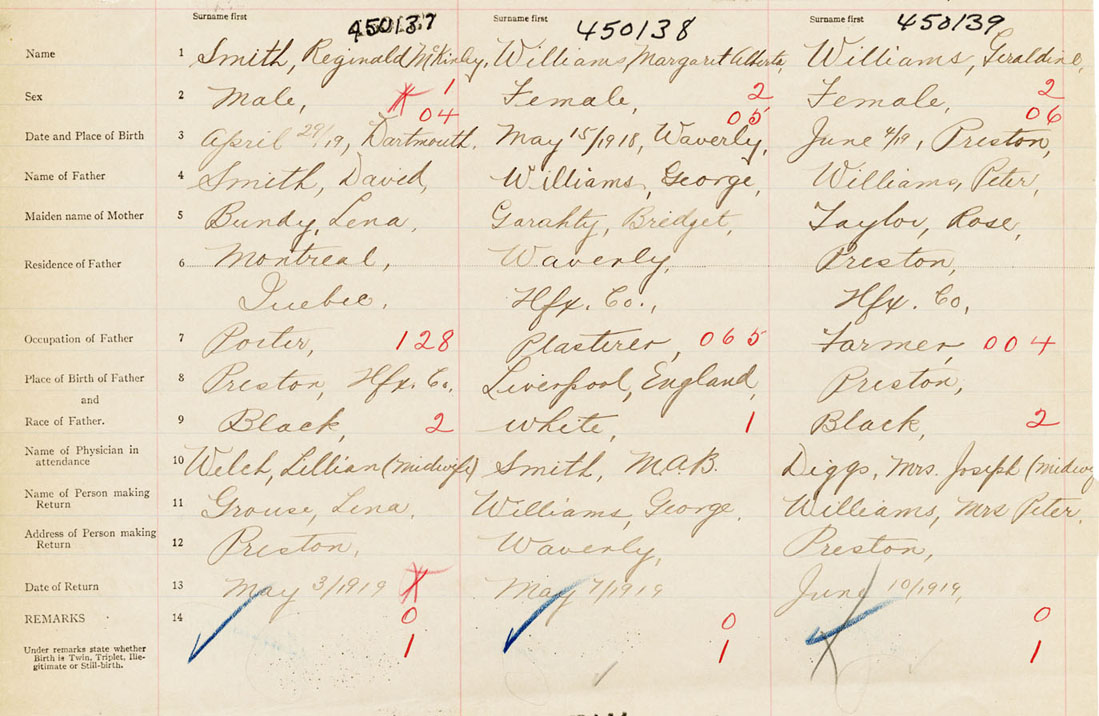 Surname first 450137 Surname first 450138 Surname first 450139
Name 1 Smith, Reginald McKinley, Williams, Margaret Alberta, Williams, Geraldine,
Sex 2 Male, 1 Female, 2 Female, 2
04 05 06
Date and Place of Birth 3 April 29/19, Dartmouth. May 15/1918, Waverly, June 4/19, Preston,
Name of Father 4 Smith, David, Williams, George, Williams, Peter,
Maiden name of Mother 5 Bundy, Lena, Garahty, Bridget, Taylor, Rose,
Residence of Father 6 Montreal, Waverly, Preston,
Quebec. Hfx. Co., Hfx. Co,
Occupation of Father 7 Porter, 128 Plasterer, 065 Farmer, 004
Place of Birth of Father 8 Preston, Hfx. Co. Liverpool, England, Preston,
and
Race of Father. 9 Black, 2 White, 1 Black, 2
Name of Physician in
attendance 10 Welch, Lillian (midwife) Smith, M.A.B. Diggs, Mrs. Joseph (midwi
Name of Person making
Return 11 Grouse, Lena, Williams, George. Williams, Mrs Peter,
Address of Person making
Return 12 Preston, Waverly, Preston,
Date of Return 13 May 3/1919 May 7/1919 June 10/1919,
REMARKS 14 0 0 0
Under remarks state whether
Birth is Twin, Triplet, Ille-
gitimate or Still-birth. 1 1 1